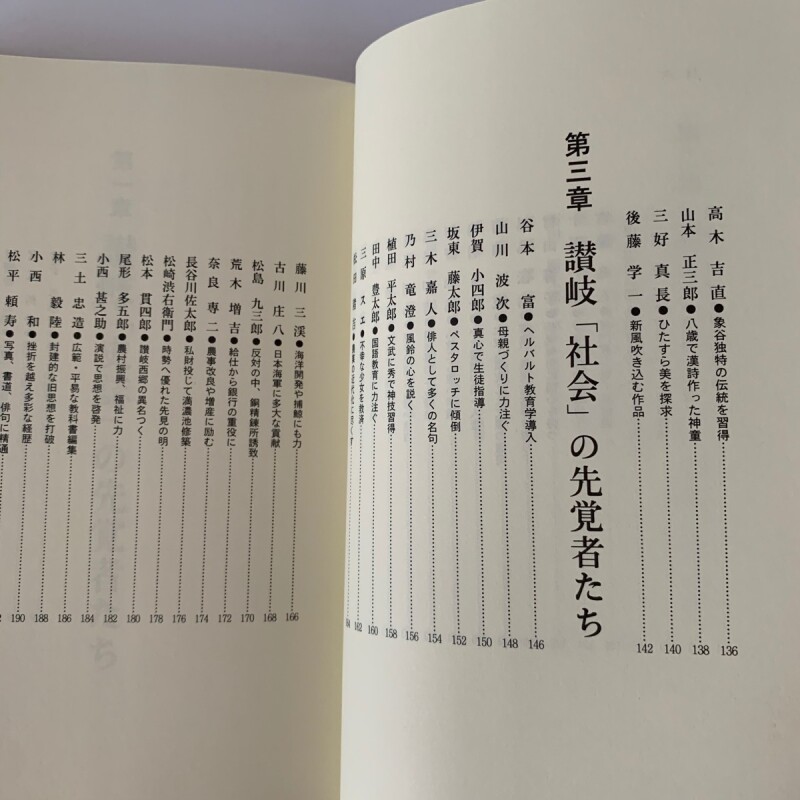 高木吉直●象谷独特の伝統を習得……136
山本正三郎●八歳で漢詩作った神童……138
三好真長●ひたすら美を探求……140
後藤学一●新風吹き込む作品……142
第三章 讃岐「社会」の先覚者たち
谷本富●ヘルバルト教育学導入……146
山川波次●母親づくりに力注ぐ……148
伊賀小四郎●真心で生徒指導……150
坂東藤太郎●ペスタロッチに傾倒……152
三木嘉人●俳人として多くの名句……154
乃村竜澄●風鈴の心を説く……156
植田平太郎●文武に秀で神技習得……158
田中豊太郎●国語教育に力注ぐ……160
三原スエ●不幸な少女を救済……162
164
藤川三渓●海洋開発や捕鯨にも力……166
古川庄八●日本海軍に多大な貢献……168
松島九三郎●反対の中、銅精錬所誘致……170
荒木増吉●給仕から銀行の重役に……172
奈良専二●農事改良や増産に励む……174
長谷川佐太郎●私財投じて満濃池修築……176
松崎渋右衛門●時勢へ優れた先見の明……178
松本貫四郎●讃岐西郷の異名つく……180
尾形多五郎●農村振興、福祉に力……182
小西甚之助●演説で思想を啓発……184
三土忠造●広範・平易な教科書編集……186
林毅陸●封建的な旧思想を打破……188
小西和●挫折を越え多彩な経歴……190
松平頼寿●写真、書道、俳句に精通